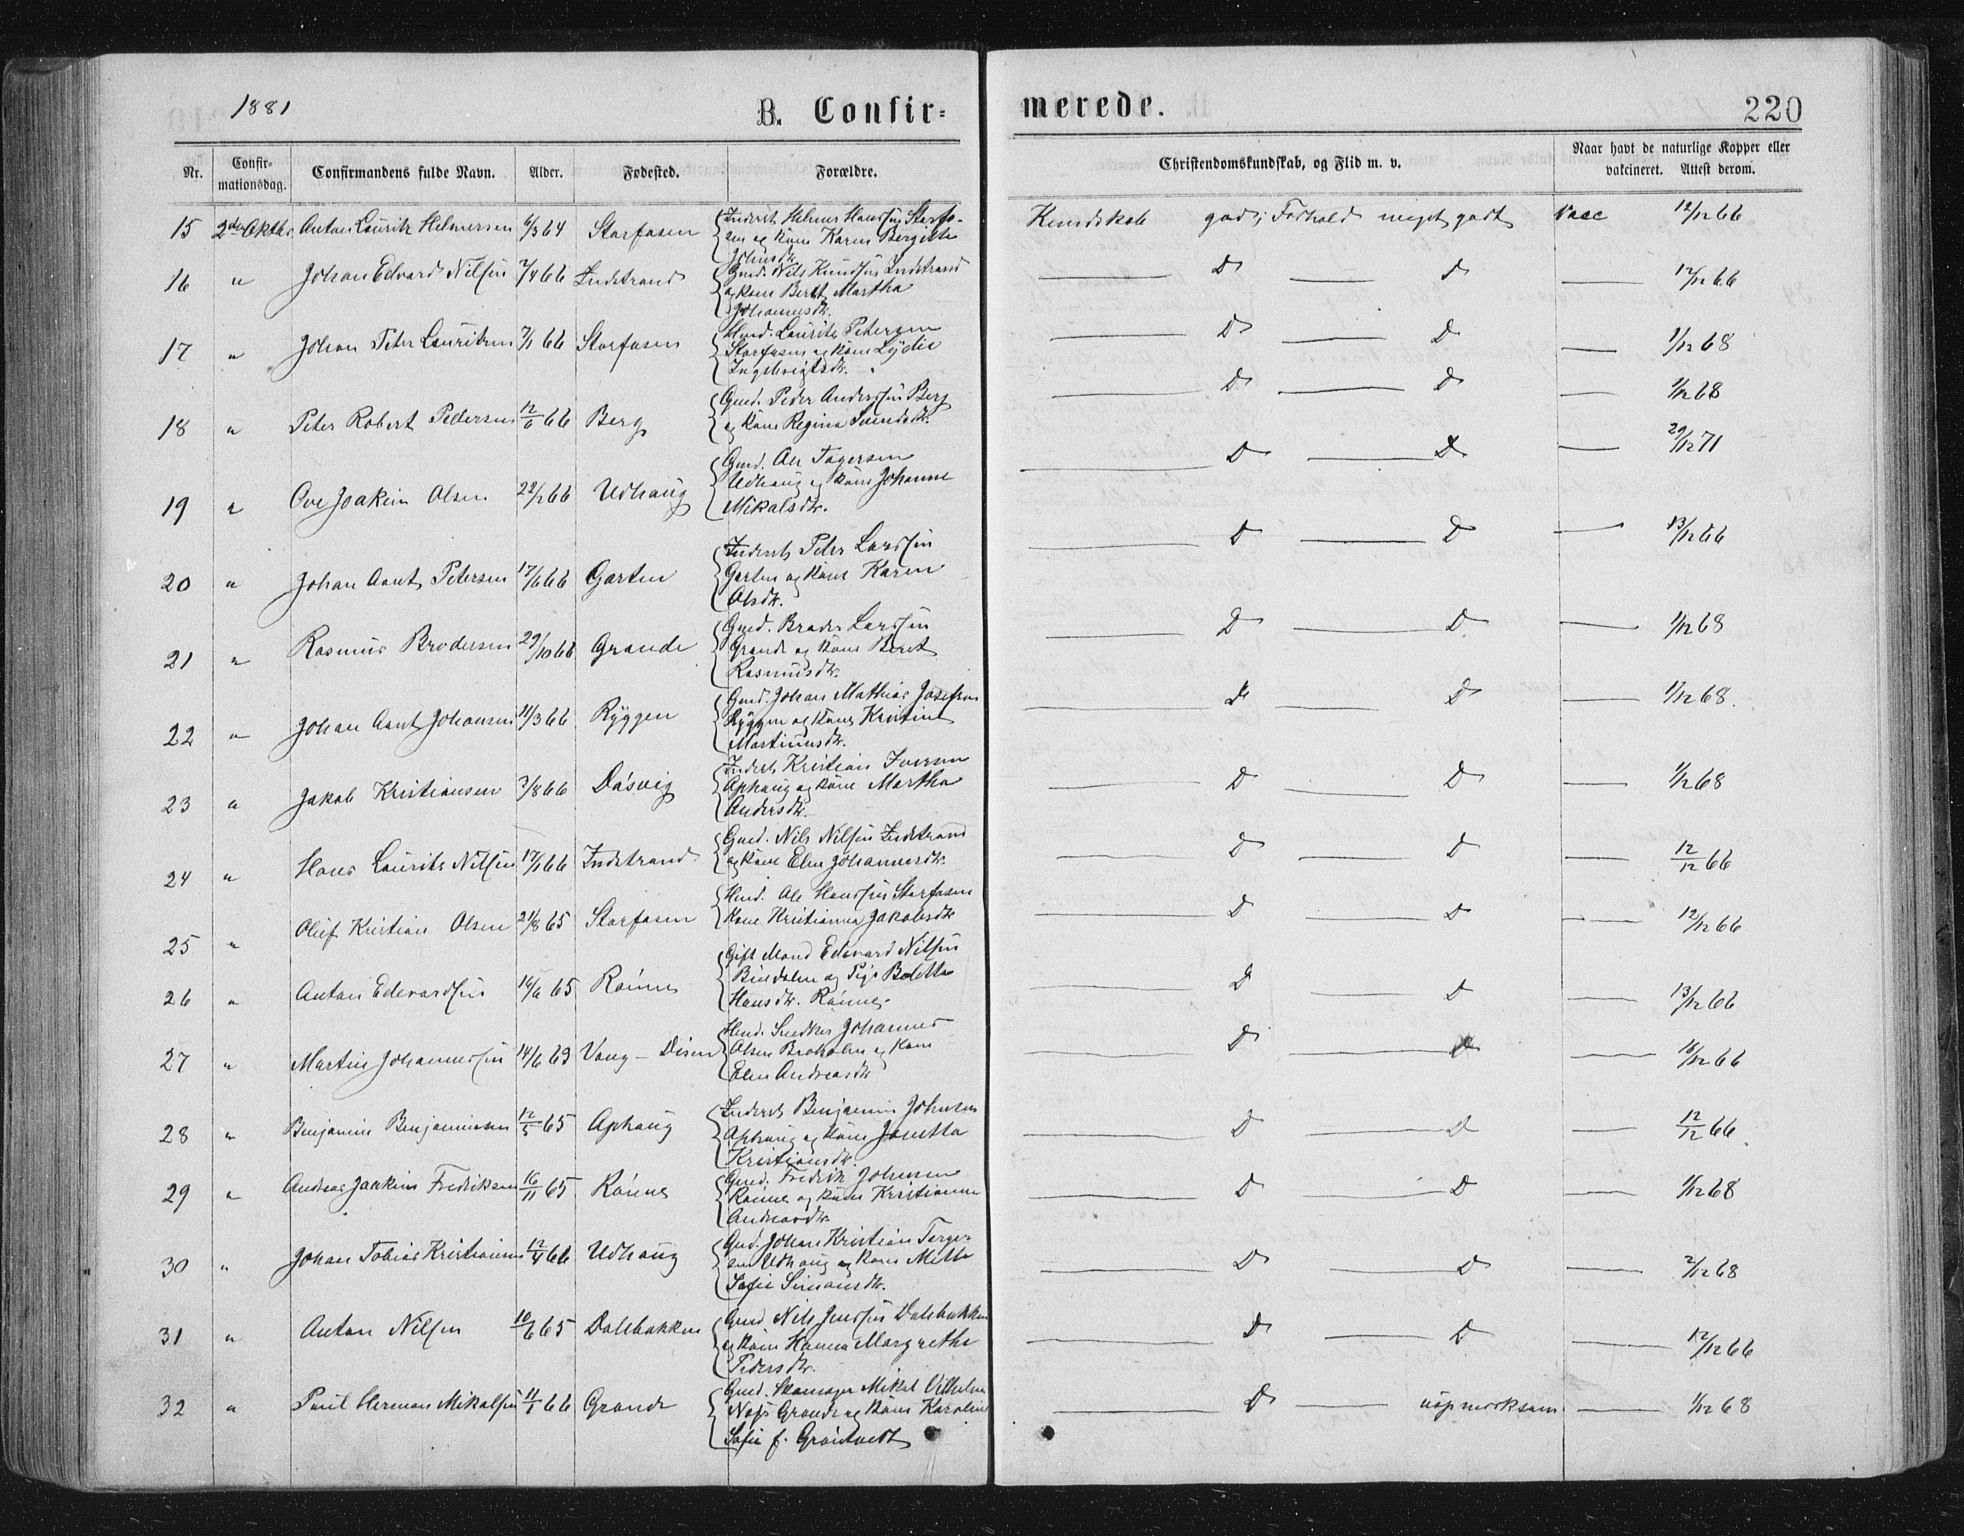 1881
B. Confir=
merede.
220
Nr.
Confir-
mationsdag.
Confirmandens fulde Navn.
Alder.
Fødested.
Forældre.
Christendomskundskab, og Flid m. v.
Naar havt de naturlige Kopper eller
vakcineret. Attest derom.
15 2den Oktbr. Anton Lauritz Helmersen 6/3 64 Storfosen Inderst Helmer Hanssøn Storfo-
sen og Kone Karen Bergitte
Johnsdtr.
Kundskab god; Forhold meget godt Vacc 12/12 66
16 " Johan Edvard Nilsen 7/4 66 Indstrand Gmd. Nils Knudsøn Indstrand
og Kone Beret Martha
Johannesdtr.
D D 12/12 66
17 " Johan Peter Lauritsen 7/1 66 Storfosen Hmd. Laurits Petersen
Storfosen og Kone Lydie
Ingebrigtsdtr.
D D 1/12 68
18 " Peter Robert Pedersen 12/6 66 Berg Gmd. Peder Anderssøn Berg
og Kone Regina Svendsdtr.
D D 1/12 68
19 " Ove Joakim Olsen 22/2 66 Udhaug Gmd. Ole
Udhaug og Kone Johanne
Mikalsdtr.
D D 29/12 71
20 " Johan Aant Petersen 17/6 66 Garten Inderst Peter Larssøn
Garten og Kone Karen
Olsdtr.
D D 13/12 66
21 " Rasmus Brodersen 29/10 66 Grande Gmd. Broder Larssøn
Grande og Kone Beret
Rasmusdtr.
D D 1/12 68
22 " Johan Aant Johansen 11/3 66 Ryggen Gmd. Johan Mathias Josefsen
Ryggen og Kone Kristine
Martinusdtr.
D D 1/12 68.
23 " Jakob Kristiansen 3/8 66 Døsvig Inderst Kristian Iversen
Ophaug og Kone Martha
Andersdtr.
D D 1/12 68
24 " Hans Laurits Nilsen 17/1 66 Indstrand Gmd. Nils Nilsen Indstrand
og Kone Elen Johannesdtr.
D D 12/12 66
25 " Oluf Kristian Olsen 21/8 65 Storfosen Hmd. Ole Hanssøn Storfosen
Kone Kristianna Jakobsdtr
D D 12/12 66
26 " Anton Edevardsøn 16/6 65 Rønne Gift Mand Edevard Nilsøn
og Pige Beletta
Hansdtr. Rønne.
D D 13/12 66
27 " Martin Johannessøn 14/6 63 Vang – Disen Hmd. Snedker Johannes
Olsen Broholm og Kone
Elen Andreasdtr
D D 16/12 66
28 " Benjamin Benjaminsen 12/5 65 Ophaug Inderst Benjamin Johnsen
Ophaug og Kone Jonetta
Kristiansdtr.
D D 12/12 66
29 " Andreas Joakim Fredriksen 16/11 65 Rønne Gmd. Fredrik Johnsen
Rønne og Kone Kristianna
Andreasdtr.
D D 1/12 68
30 " Johan Tobias Kristiansen 12/4 66 Udhaug Gmd. Johan Kristian Torger-
sen Udhaug og Kone Mette
Sofie Simonsdtr.
D D 2/12 68
31 " Anton Nilsen 10/6 65 Dalebakken Gmd Nils Jenssøn Dalebakken
og Kone Hanna Margrethe
Pedersdtr.
D D 12/12 66
32 " Paul Herman Mikalsøn 11/1 66 Grande Gmd. Skomager Mikal Vilhelm
Grande og Kone Karoline
Sofie f. Grøntvedt
D uopmærksom 1/12 68